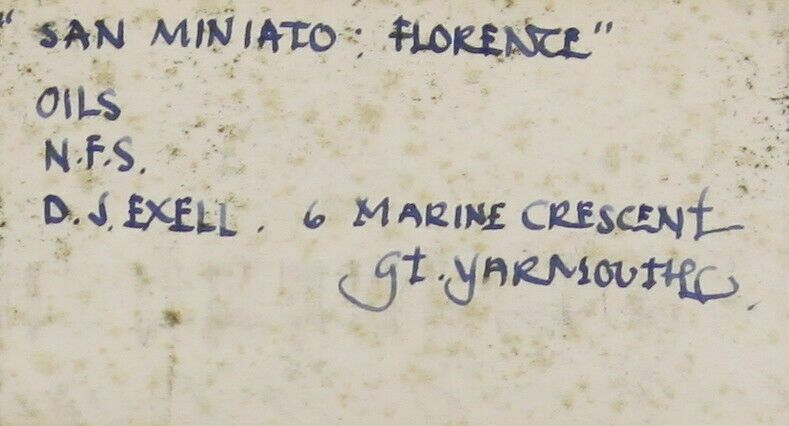 "SAN MINIATO: FLORENCE"
OILS
N.F.S.
D.J. EXELL. 6 MARINE CRESCENT
Gt. YARMOUTH.